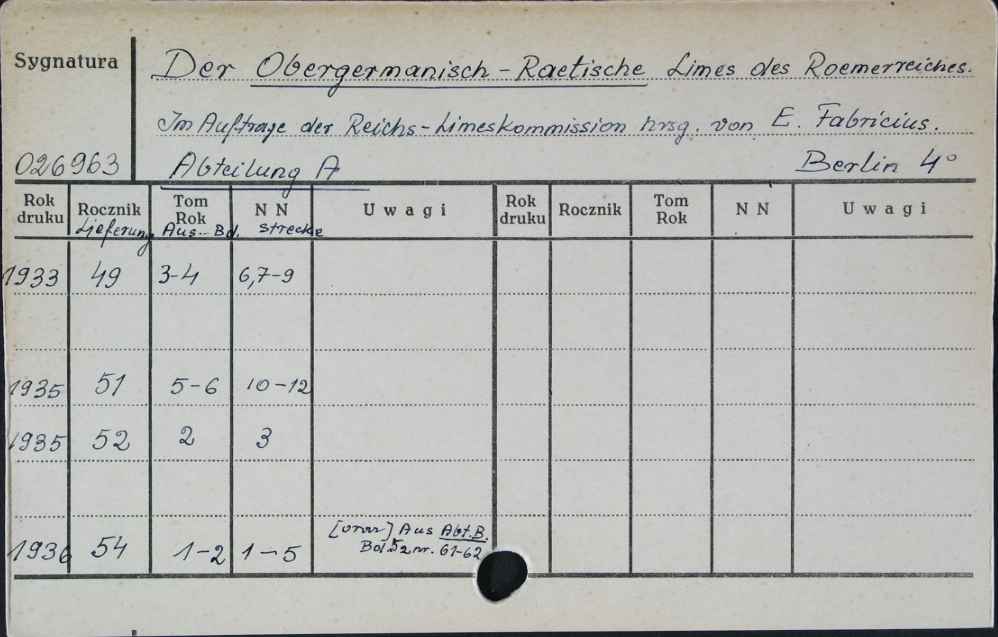 Sygnatura
Der Obergermanisch-Raetische Limes des Roemerreiches.
Im Auftrage der Reichs-Limeskommission hrsg. von E. Fabricius.
026963 Abteilung A Berlin 4°
Rok druku Rocznik Tom Rok N N Uwagi Rok druku Rocznik Tom Rok N N Uwagi
Lieferung Aus Bd. Strecke
1933 49 3-4 6,7-9
1935 51 5-6 10-12
1935 52 2 3
[oraz] Aus Abt. B.
1936 54 1-2 1-5 Bd. 5 2 nr. 61-62